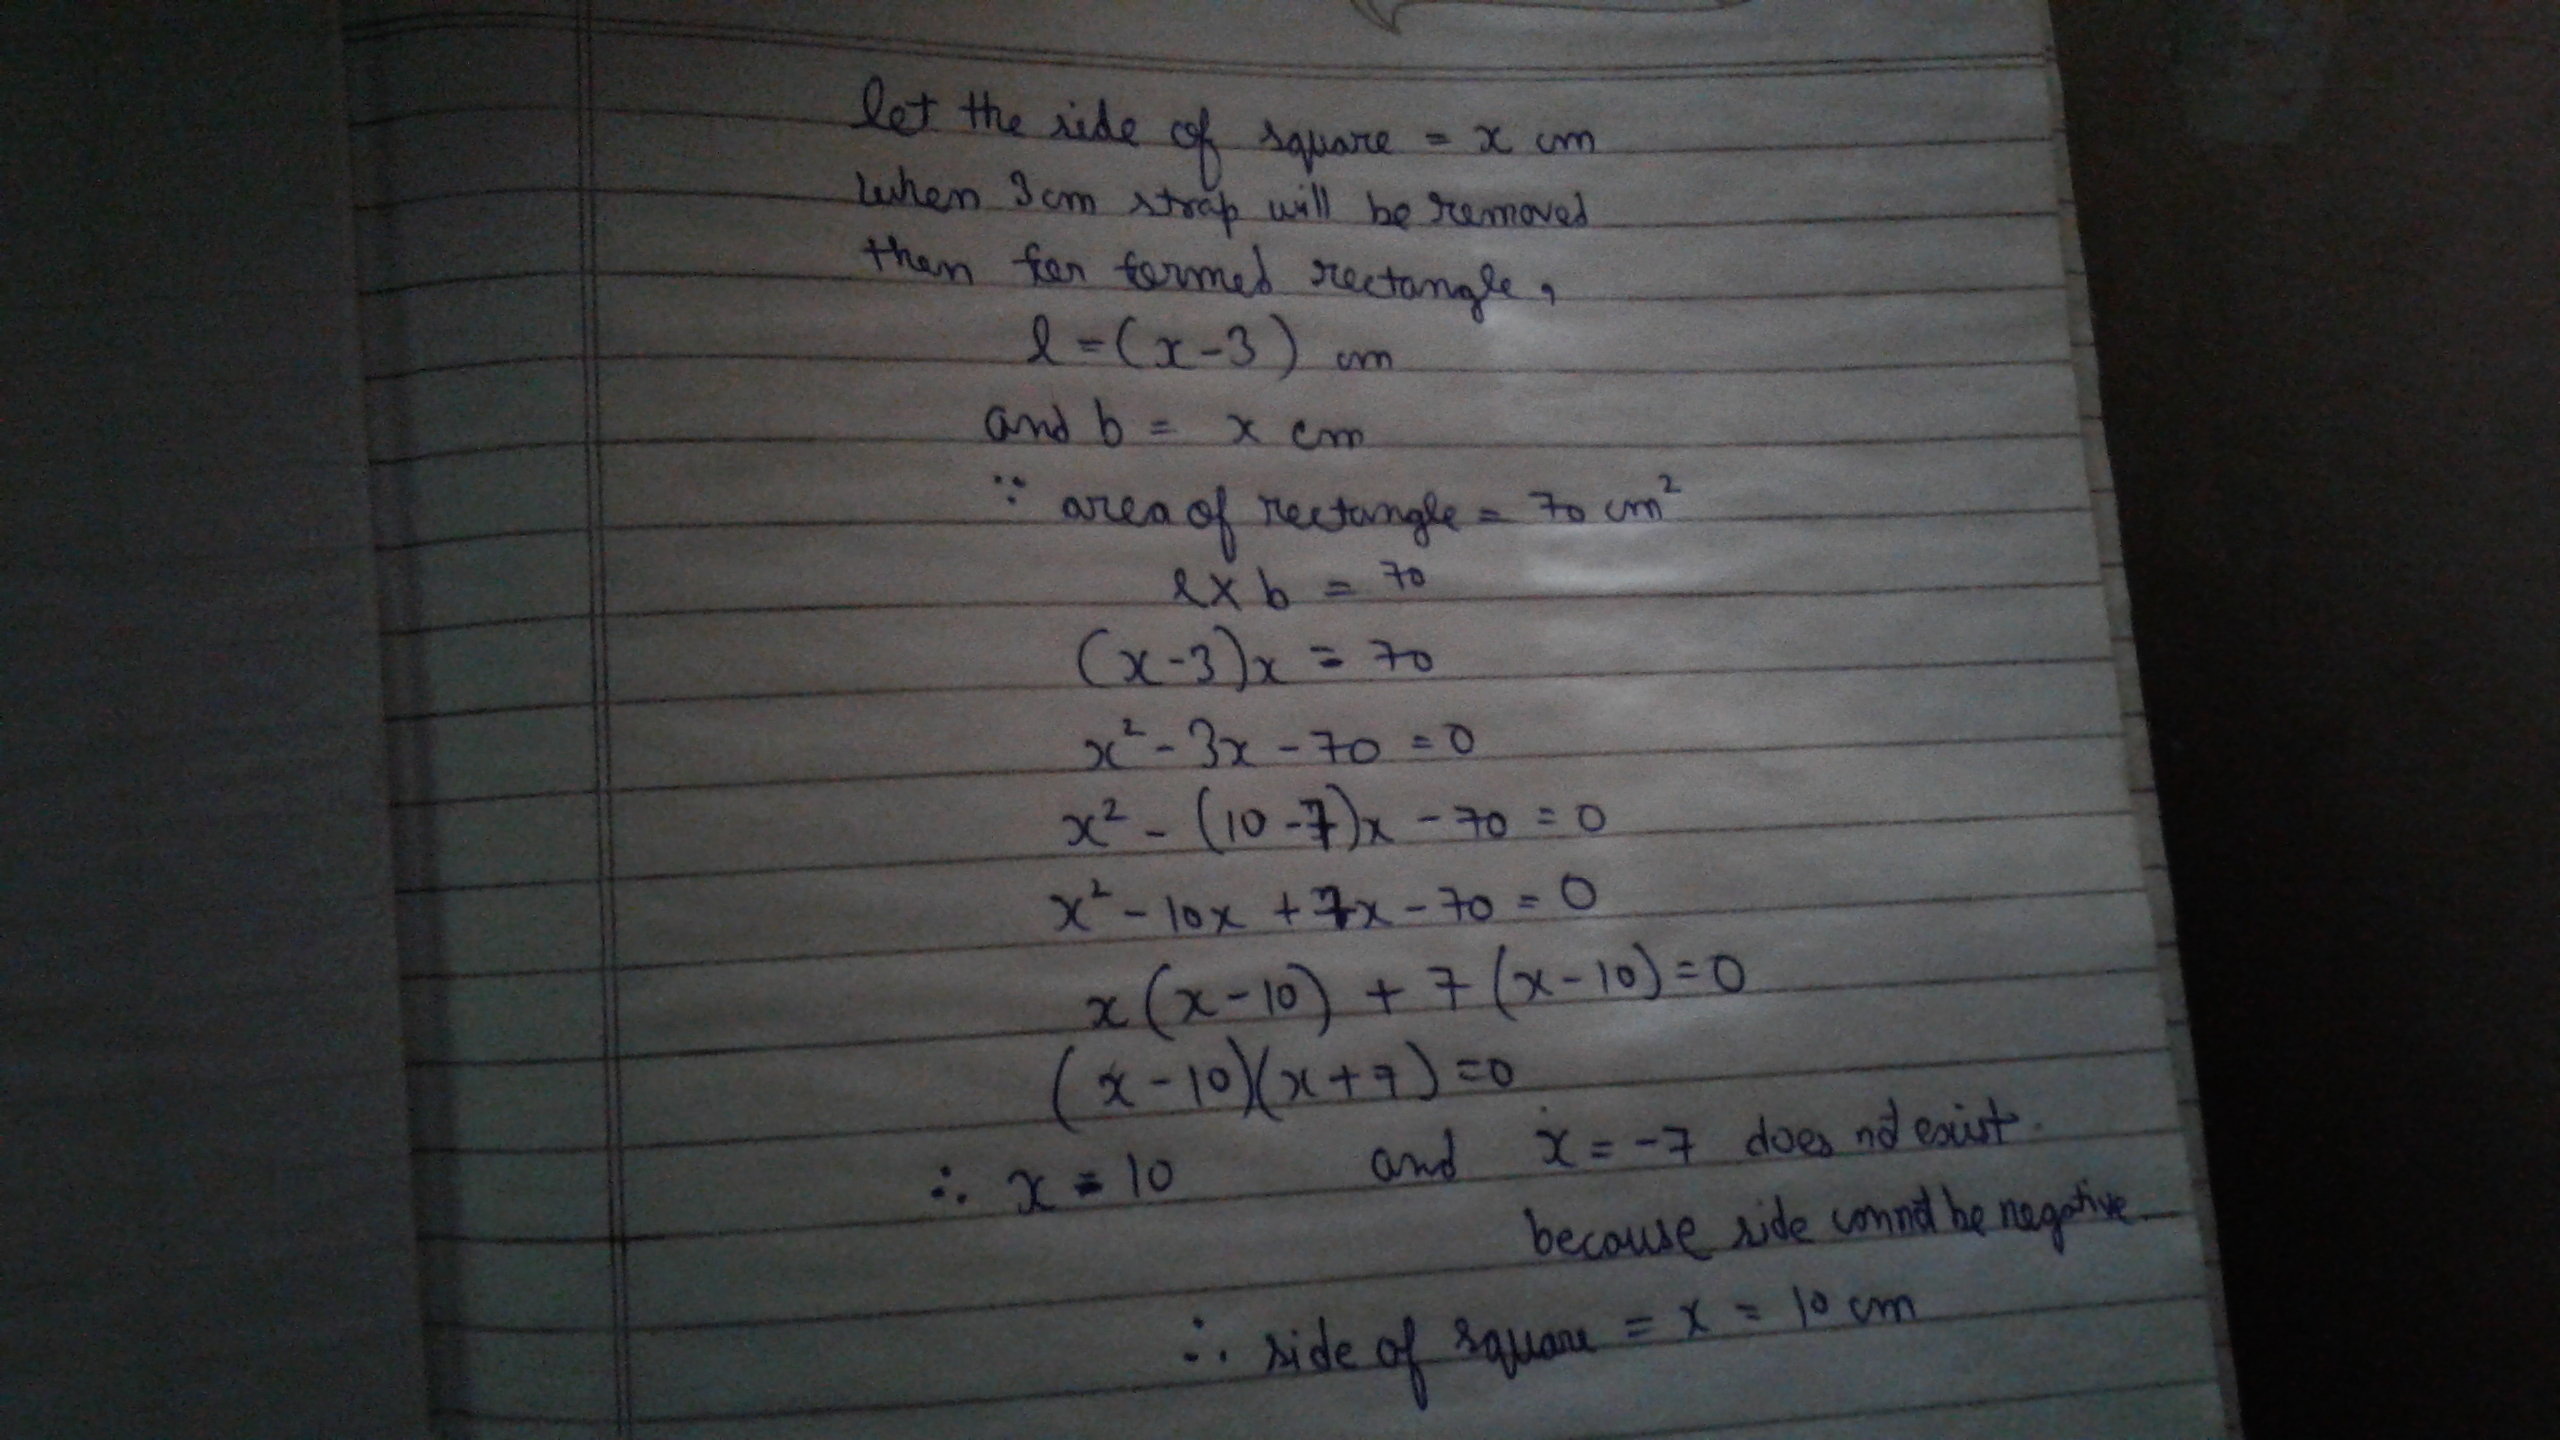 let the side of square = x cm
when 3cm strap will be removed
then for formed rectangle,
l = (x-3) cm
and b = x cm
∵ area of rectangle = 70 cm²
l × b = 70
(x-3)x = 70
x² - 3x - 70 = 0
x² - (10-7)x - 70 = 0
x² - 10x + 7x - 70 = 0
x(x-10) + 7(x-10) = 0
(x-10)(x+7) = 0
∴ x = 10 and x = -7 does not exist.
because side cannot be negative
∴ side of square = x = 10 cm